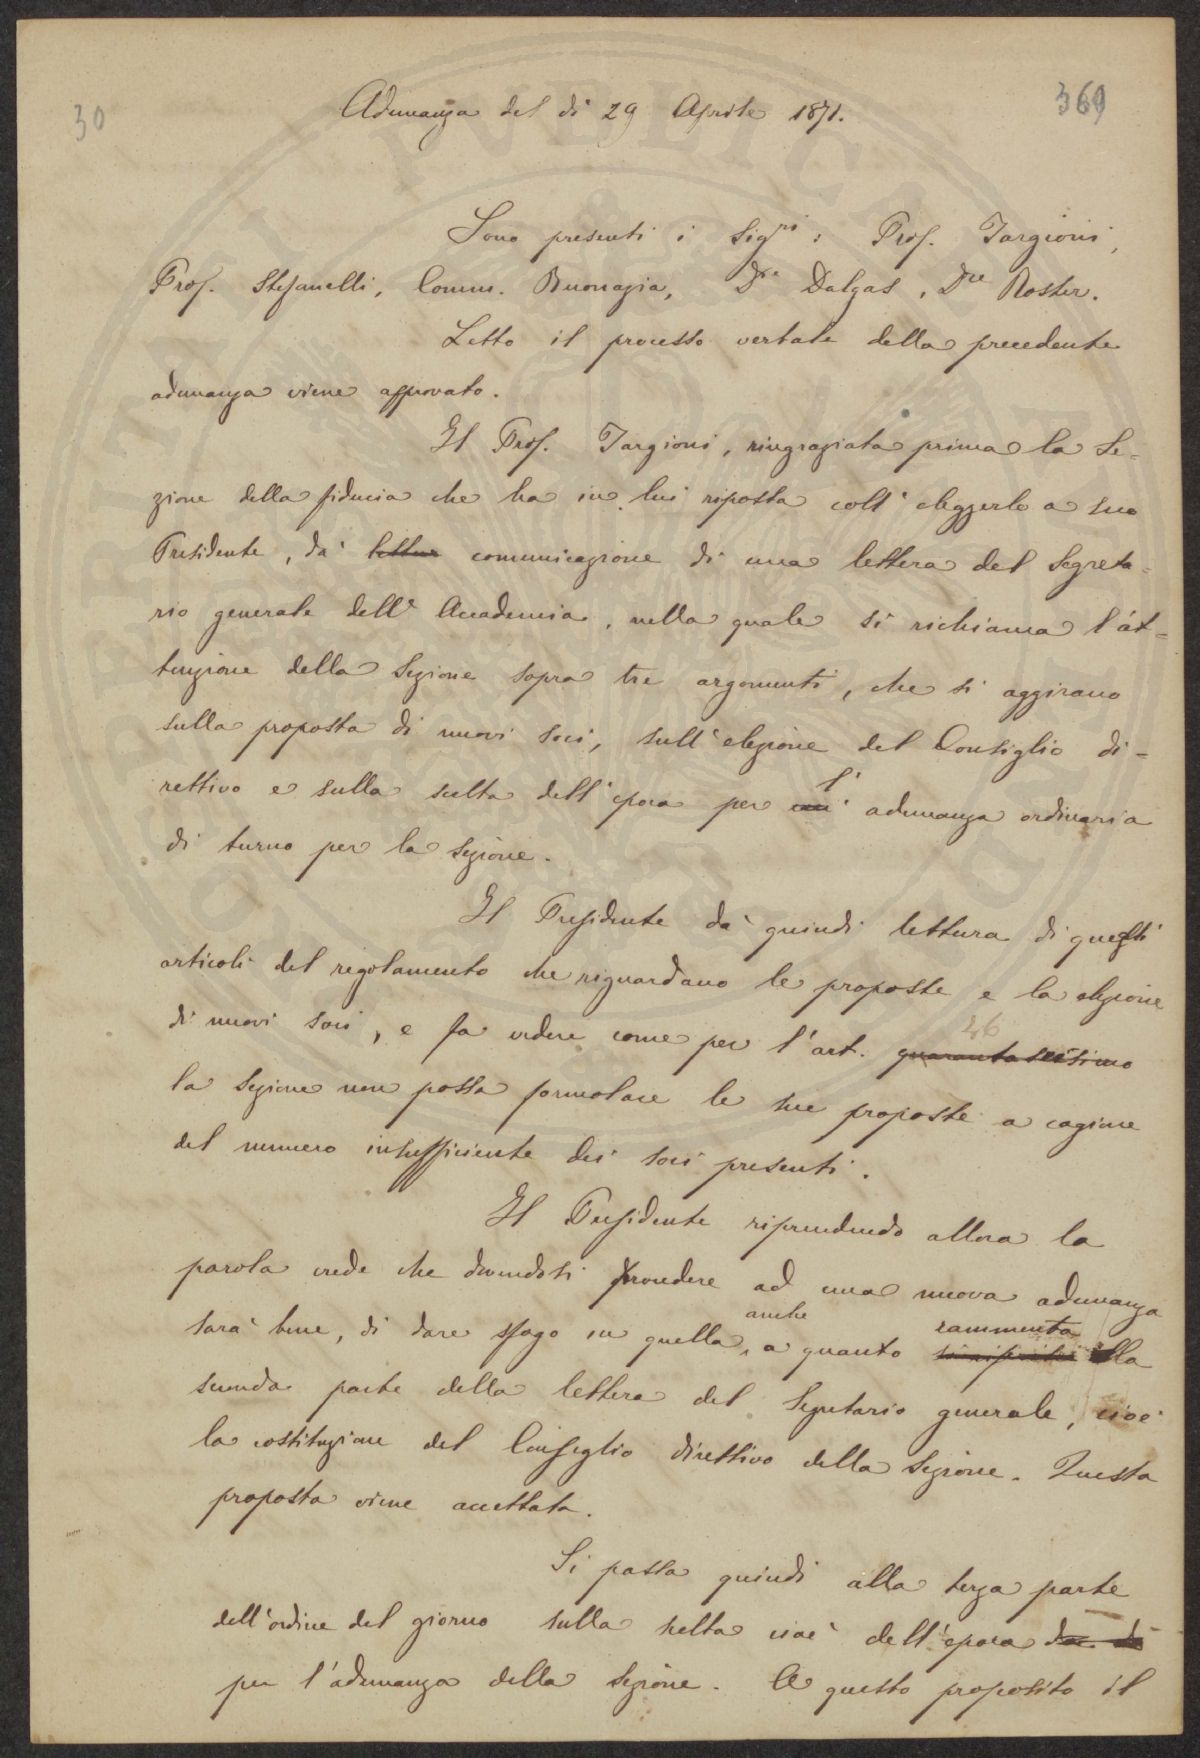 30
369
Adunanza del dì 29 Aprile 1871.
Sono presenti i Sigri: Prof. Targioni,
Prof. Stefanelli, Comm. Buonazia, Dre Dalgas, Dre Roster.
Letto il processo verbale della precedente
adunanza viene approvato.
Il Prof. Targioni, ringraziata prima la Se-
zione della fiducia che ha in lui riposta coll'eleggerlo a suo
Presidente, dà lettura comunicazione di una lettera del Segreta-
rio generale dell'Accademia, nella quale si richiama l'at-
tenzione della Sezione sopra tre argomenti, che si aggirano
sulla proposta di nuovi soci, sull'elezione del Consiglio di-
rettivo e sulla scelta dell'epoca per un' l' adunanza ordinaria
di turno per la sezione.
Il Presidente dà quindi lettura di quegli
articoli del regolamento che riguardano le proposte e la elezione
di nuovi soci, e fa vedere come per l'art. quarantaseesimo 46
la Sezione non possa formolare le sue proposte a cagione
del numero insufficiente dei soci presenti.
Il Presidente riprendendo allora la
parola crede che dovendosi procedere ad una nuova adunanza
sarà bene, di dare sfogo in quella, anche a quanto si riferisce rammenta alla
seconda parte della lettera del Segretario generale, cioè
la costituzione del Consiglio direttivo della Sezione. Questa
proposta viene accettata.
Si passa quindi alla terza parte
dell'ordine del giorno sulla scelta cioè dell'epoca
per l'adunanza della Sezione. A questo proposito il